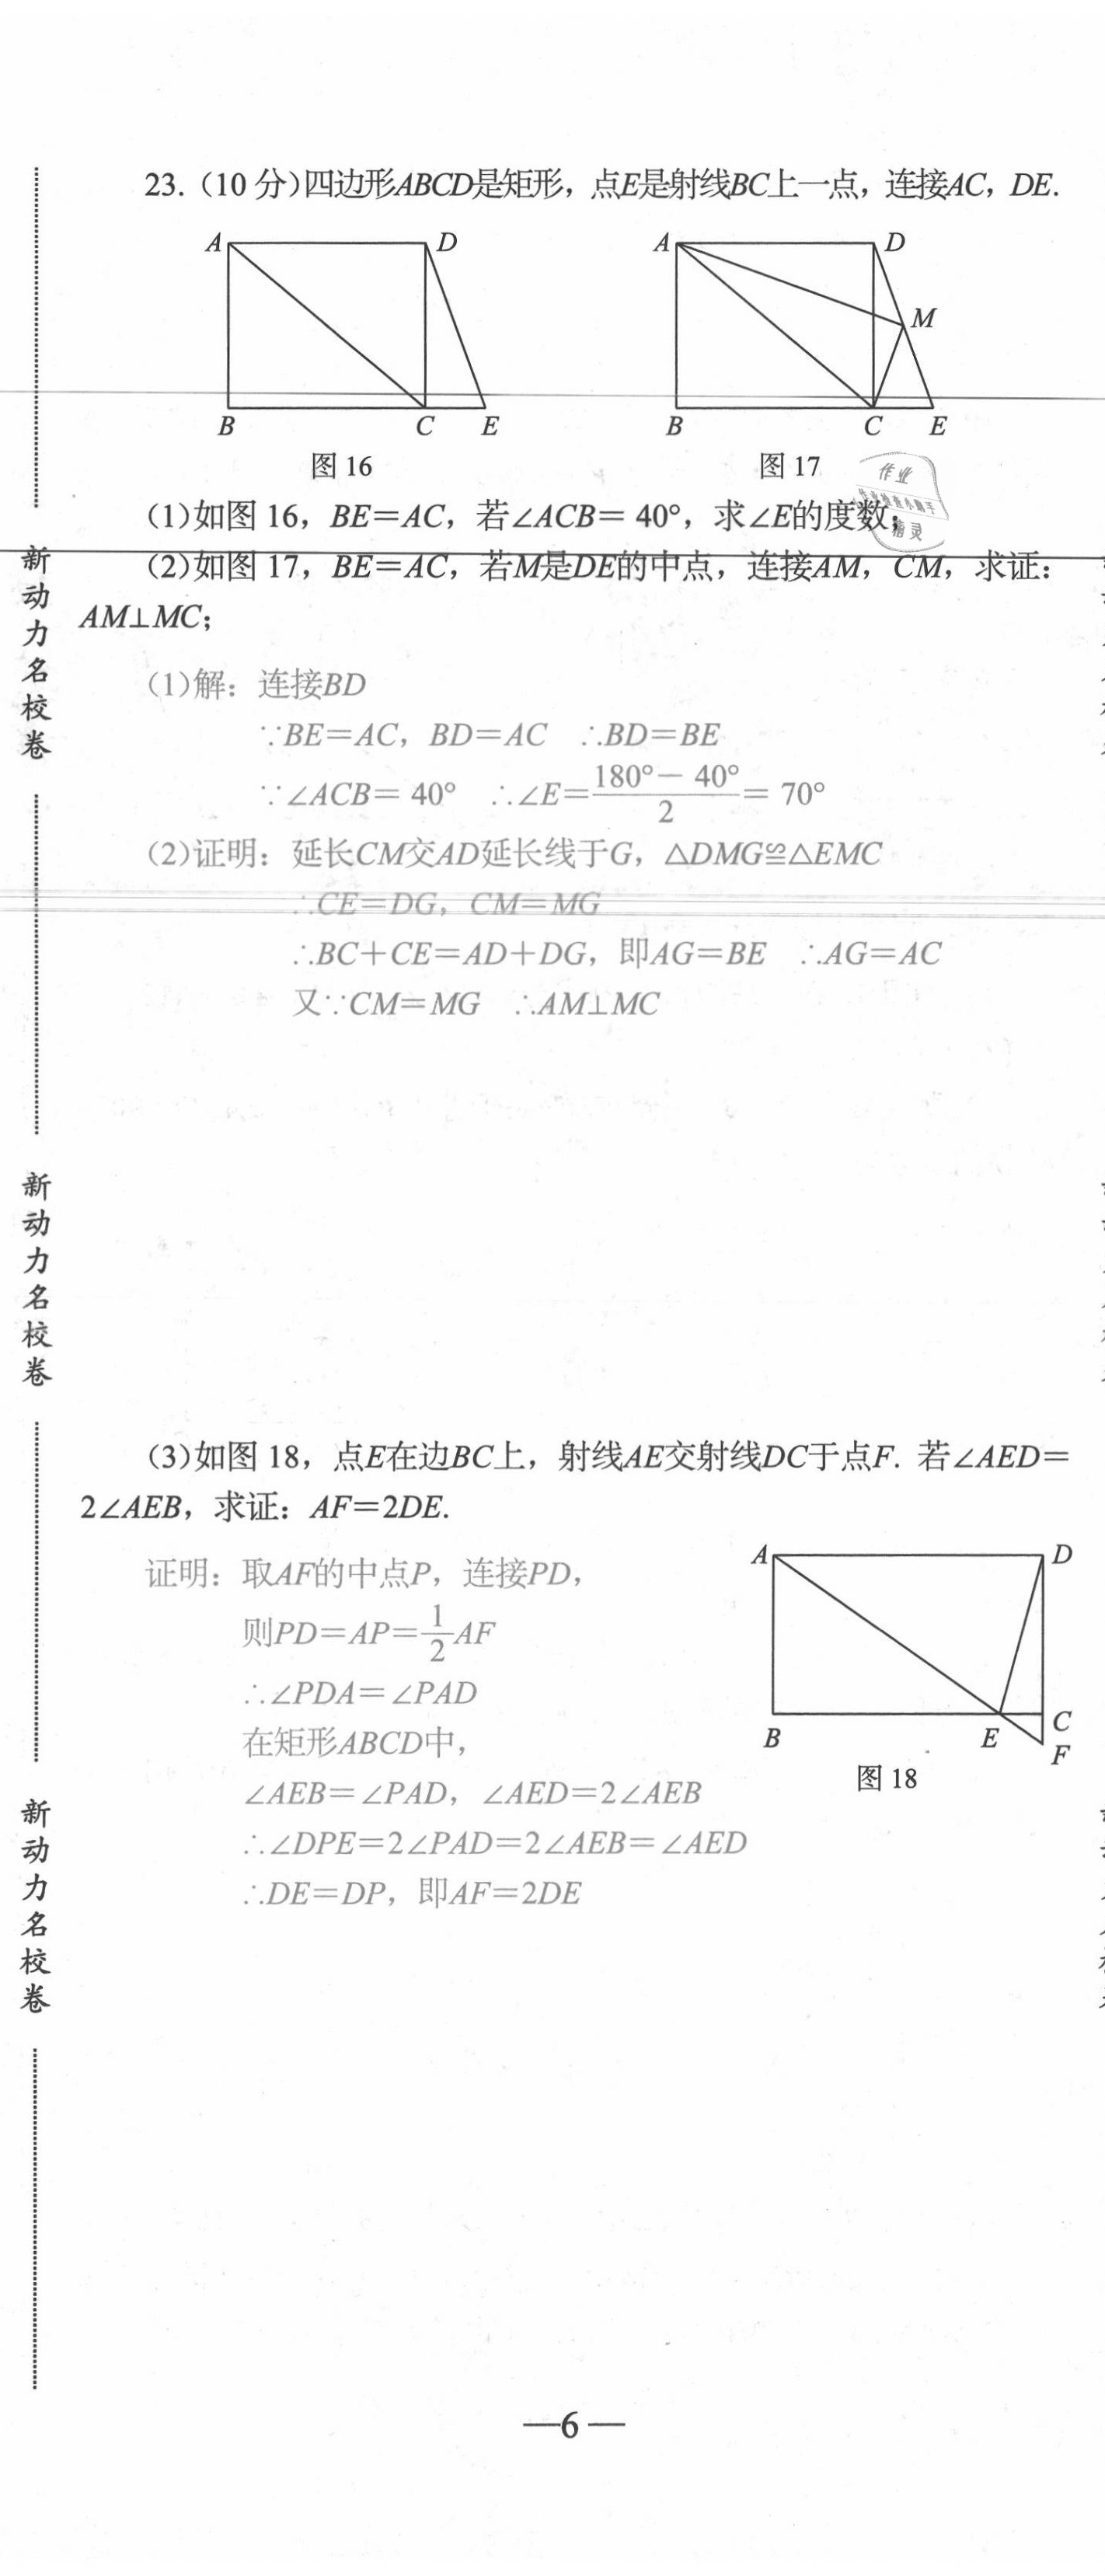 23.(10分)四边形ABCD是矩形，点E是射线BC上一点，连接AC，DE.
A D
B C E
图16
A D
M
B C E
图17
作业
精灵
(1)如图16，BE=AC，若∠ACB= 40°，求∠E的度数；
(2)如图17，BE=AC，若M是DE的中点，连接AM，CM，求证：
AM⊥MC；
(1)解：连接BD
∵BE=AC，BD=AC ∴BD=BE
∵∠ACB= 40° ∴∠E=(180°- 40°)/2= 70°
(2)证明：延长CM交AD延长线于G，△DMG≌△EMC
∴CE=DG，CM=MG
∴BC+CE=AD+DG，即AG=BE ∴AG=AC
又∵CM=MG ∴AM⊥MC
(3)如图18，点E在边BC上，射线AE交射线DC于点F. 若∠AED=
2∠AEB，求证：AF=2DE.
证明：取AF的中点P，连接PD，
则PD=AP=1/2AF
∴∠PDA=∠PAD
在矩形ABCD中，
∠AEB=∠PAD，∠AED=2∠AEB
∴∠DPE=2∠PAD=2∠AEB=∠AED
∴DE=DP，即AF=2DE
A D
B E C
F
图18
新动力名校卷
新动力名校卷
新动力名校卷
—6—